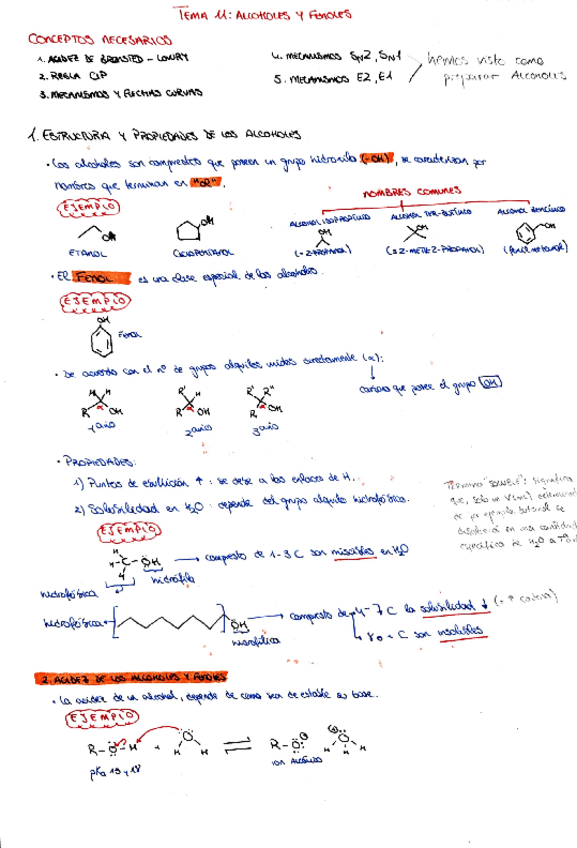 TEMA 11: ALCOHOLES Y FENOLES
CONCEPTOS NECESARIOS
1. ACIDEZ DE BRONSTED-LOWRY
2. REGLA CIP
3. MECANISMOS Y FLECHAS CURVAS
4. MECANISMOS SN2, SN1
5. MECANISMOS E2, E1
hemos visto como
preparar Alcoholes
1. ESTRUCTURA Y PROPIEDADES DE LOS ALCOHOLES
· Los alcoholes son compuestos que poseen un grupo hidroxilo (-OH), se caracterizan por
nombres que terminan en "OL".
EJEMPLO
OH
ETANOL
OH
CICLOPENTANOL
NOMBRES COMUNES
ALCOHOL ISOPROPÍLICO
ALCOHOL TER-BUTÍLICO
ALCOHOL BENCÍLICO
OH
OH
OH
(=2-PROPANOL)
(fenilmetanol)
· El FENOL es una clase especial de los alcoholes.
EJEMPLO
OH
FENOL
· De acuerdo con el nº de grupos alquilos unidos directamente (α):
carbono que posee el grupo OH
H H
R OH
1ario
R' H
R OH
2ario
R' R"
R OH
3ario
· PROPIEDADES:
1) Puntos de ebullición ↑ : se debe a los enlaces de H.
2) Solubilidad en H2O : depende del grupo alquilo hidrofóbico.
TÉRMINO "SOLUBLE": significa
específica de H2O a Tª
EJEMPLO
H
H-C-OH
H
hidrofílica
hidrofóbica
compuesto de 1-3 C son miscibles en H2O
hidrofóbica
OH
hidrofílica
compuesto de 4-7 C la solubilidad ↓
8 o + C son insolubles
2. ACIDEZ DE LOS ALCOHOLES Y FENOLES
· La acidez de un alcohol, depende de como sea de estable su base.
EJEMPLO
R-O-H + O H H ⇌ R-O H O H H
pKa 15 y 18
ION ALCÓXIDO